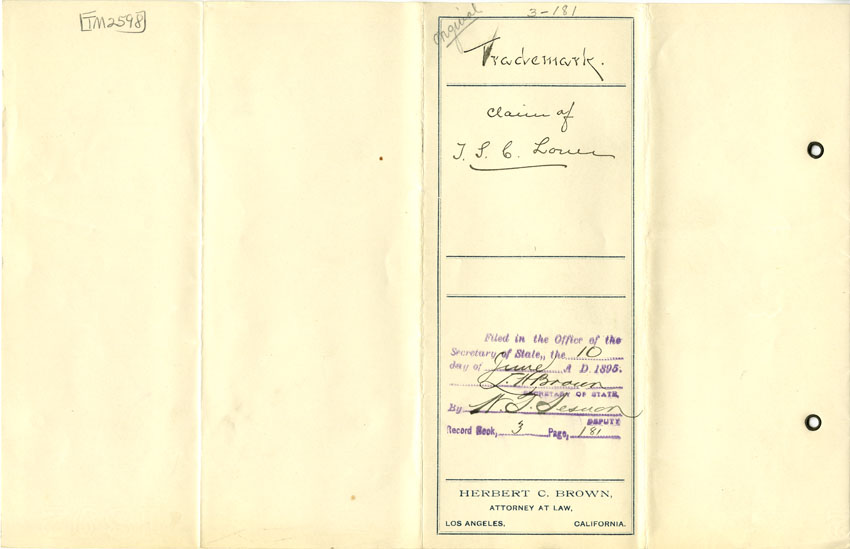 TM2598
Original
3-181
Trademark.
Claim of
T. S. C. Lowe
Filed in the Office of the
Secretary of State, the 10
day of June A D. 1895.
L. H. Brown
SECRETARY OF STATE,
By W. T. Sesnon
DEPUTY
Record Book, 3 Page, 181
HERBERT C. BROWN,
ATTORNEY AT LAW,
LOS ANGELES, CALIFORNIA.